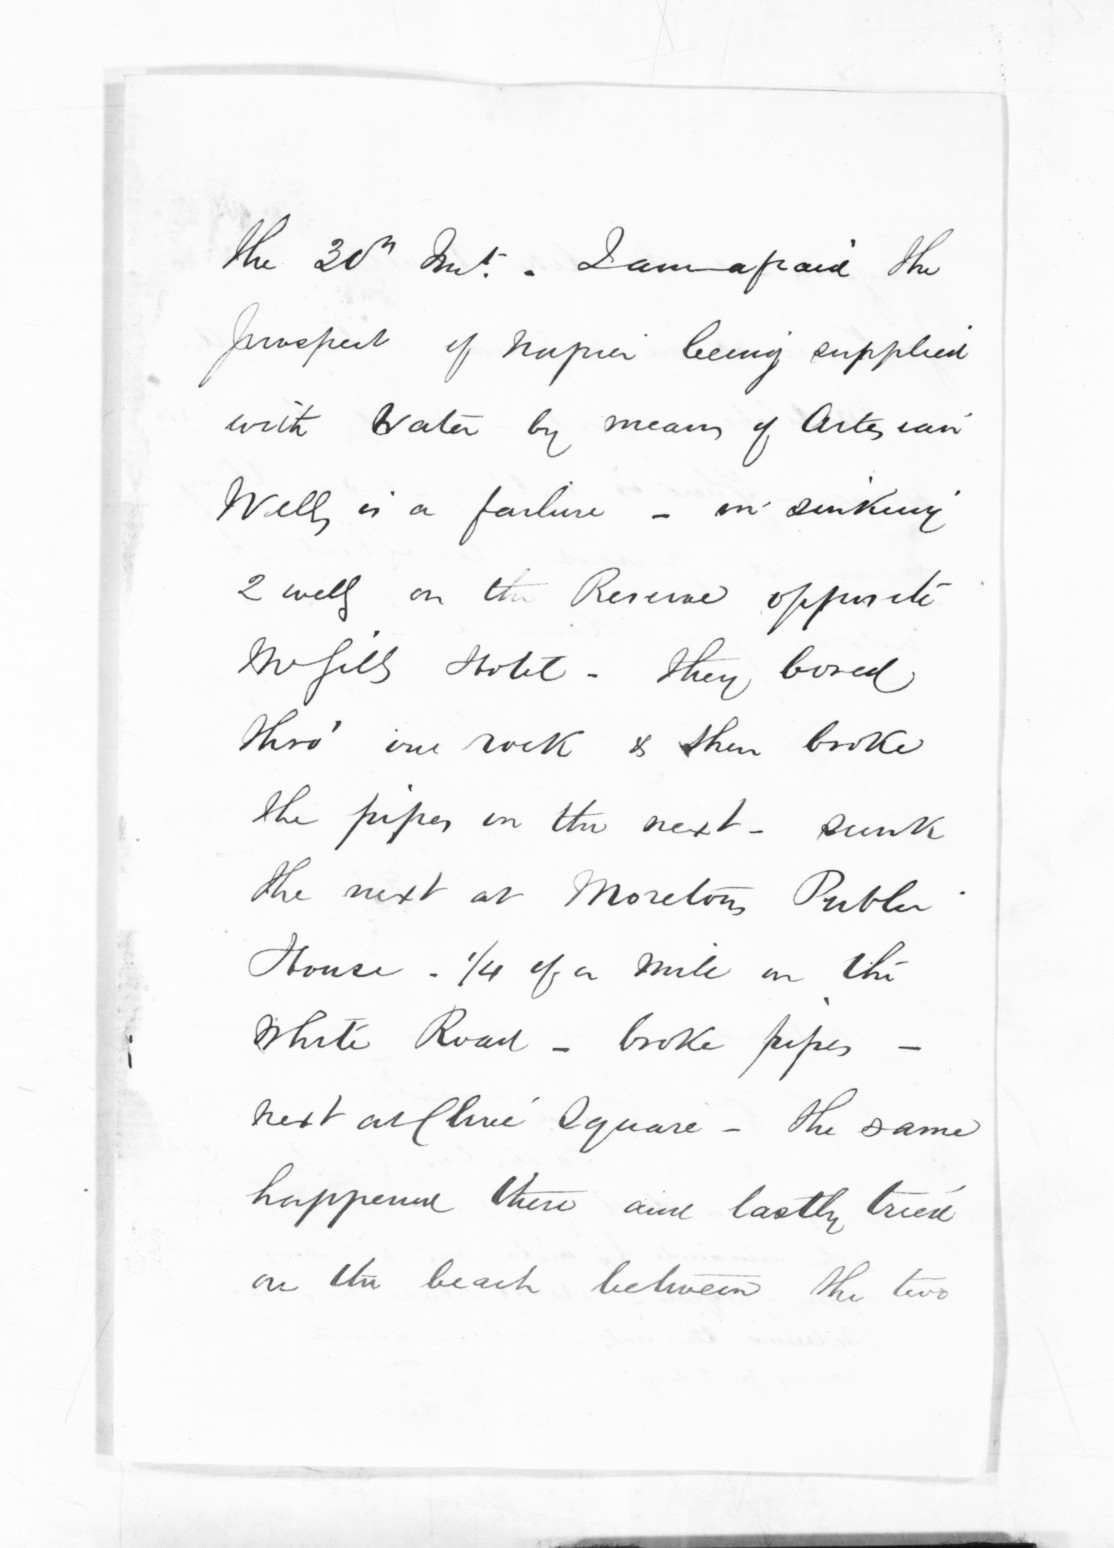 the 30th Inst. - I am afraid the
prospect of Napier being supplied
with Water by means of Artesian
Wells is a failure - in sinking
2 wells on the Reserve opposite
McGills Hotel - they bored
thro' one rock & then broke
the pipes in the next - sunk
the next at Moretons Public
House - 1/4 of a mile on the
White Road - broke pipes -
next at Clive Square - the same
happened there and lastly tried
on the beach between the two